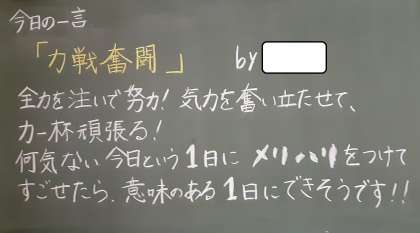 今日の一言
「力戦奮闘」 by
全力を注いで努力！気力を奮い立たせて、
力一杯頑張る！
何気ない今日という1日にメリハリをつけて
すごせたら、意味のある1日にできそうです！！